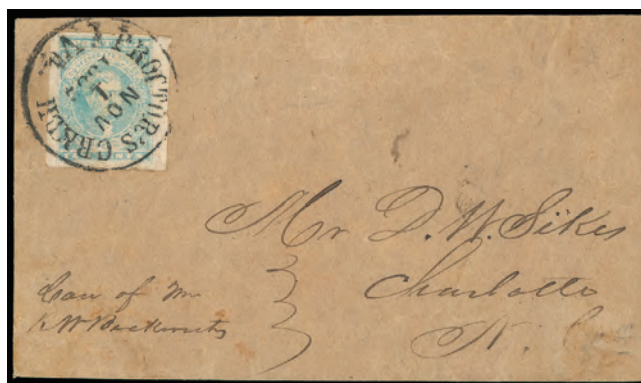 PROCTOR'S CREEK VA
NOV
1
Mr D. W. Sikes
Charlotte
N. C
Care of Mr